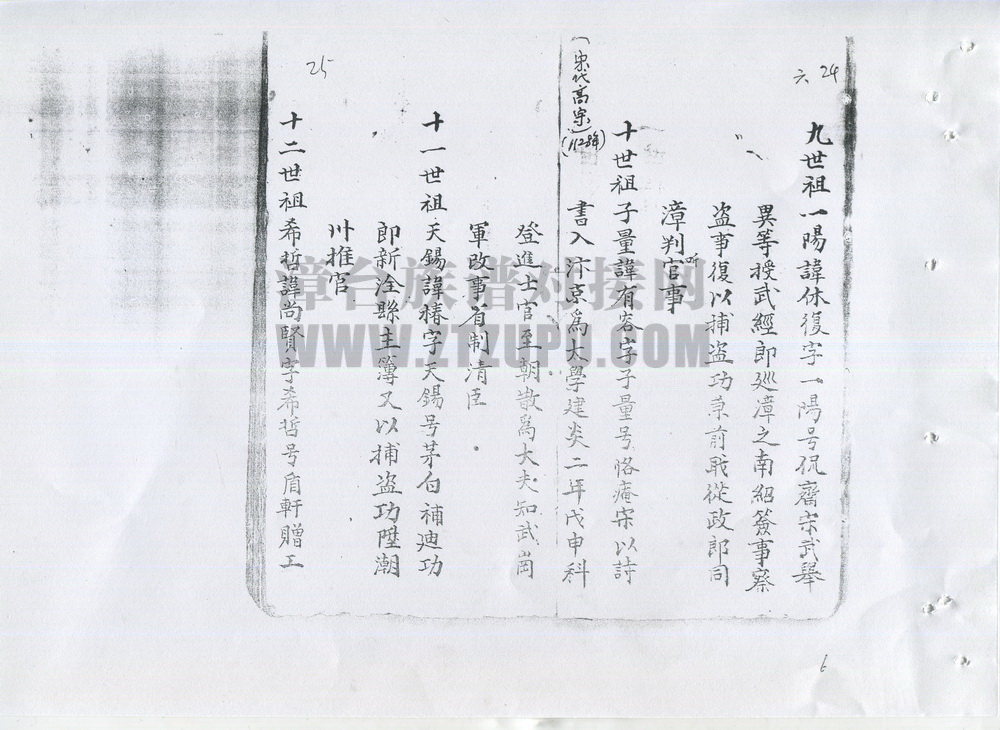 六 24
九世祖一陽諱休復字一陽号侃齋宋武舉
異等授武經郎廵漳之南紹簽事察
盗事復以捕盗功禀前戢從政郎同
漳判官事
(宋代高宗)
(1128年)
十世祖子量諱有容字子量号恪庵宋以詩
書入汴京爲太學建炎二年戊申科
登進士官至朝散爲大夫知武崗
軍改事省制清臣
十一世祖天錫諱椿字天錫号茅伯補廸功
郎新淦縣主簿又以捕盗功陞潮
州推官
25
十二世祖希哲諱尚賢字希哲号盾軒贈工
6
漳台族谱对接网
WWW.ZTZUPU.COM